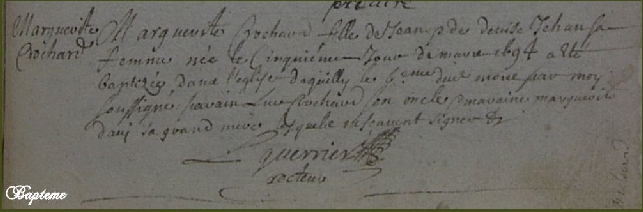 Marguerite
Crochard
Marguerite Crochard fille de Jean p de denise Jehan sa
femme née le Cinquiéme Jour de mars 1694 a été
baptizée dans l'eglise daguilly le 6eme dud mois par moy
soussigné parain Luc Crochard son oncle maraine marguerite
davi sa grand mere lesquels ne scavent signer
guerrier
recteur
Bapteme